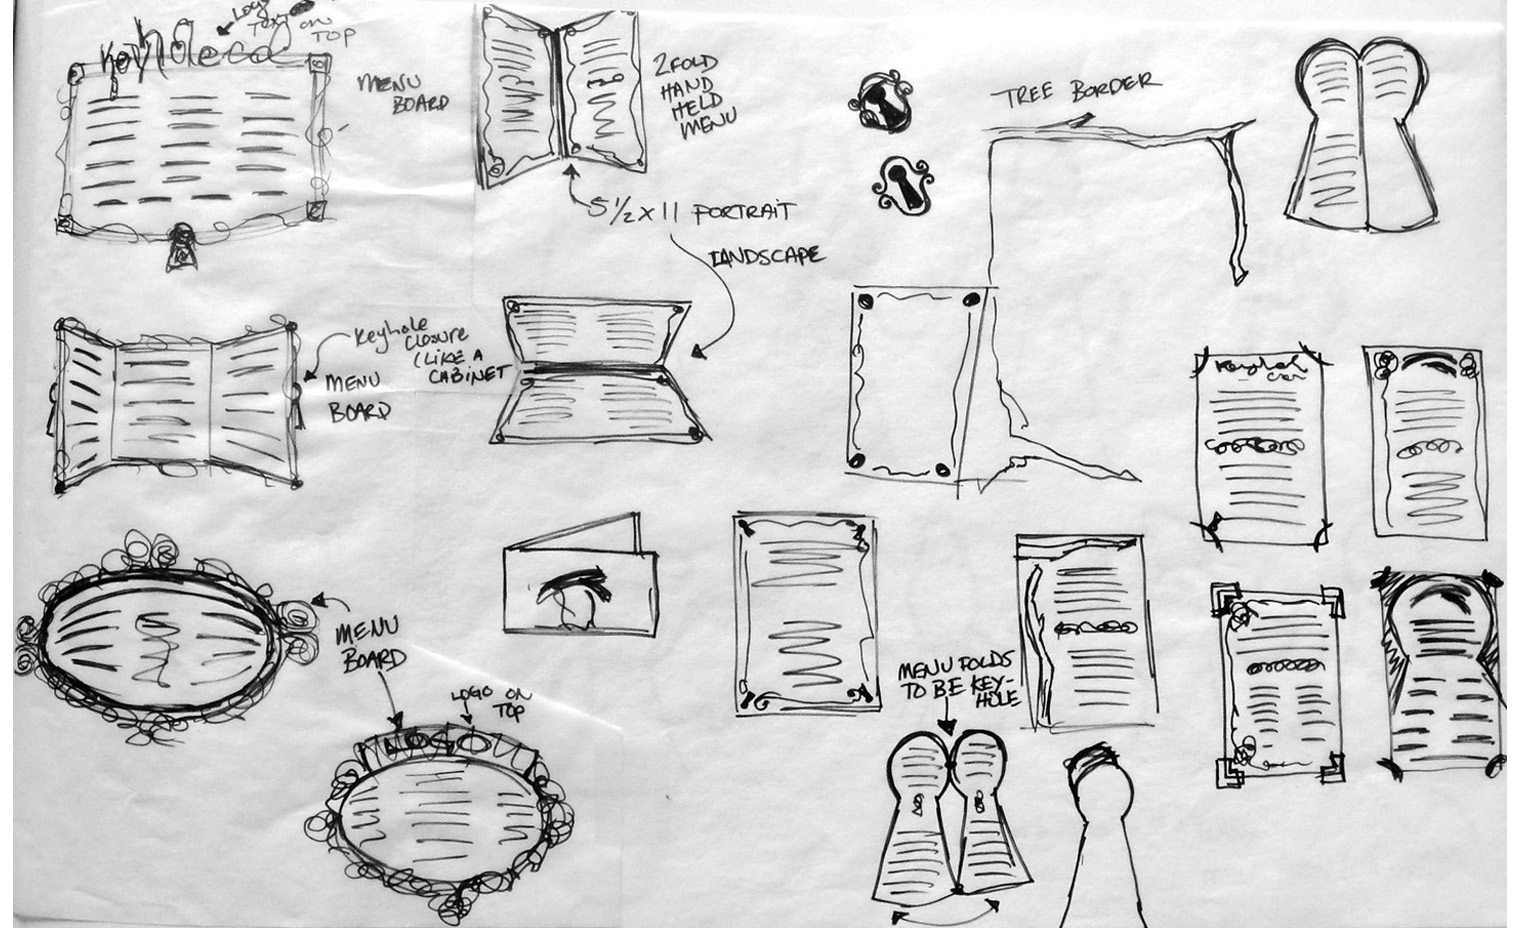 LOGO
TEXT ON
TOP
Keyhole
MENU
BOARD
2 FOLD
HAND
HELD
MENU
5 1/2 x 11 PORTRAIT
LANDSCAPE
TREE BORDER
Keyhole
CLOSURE
(LIKE A
CABINET
MENU
BOARD
MENU
BOARD
LOGO ON
TOP
LOGO
MENU FOLDS
TO BE KEY-
HOLE